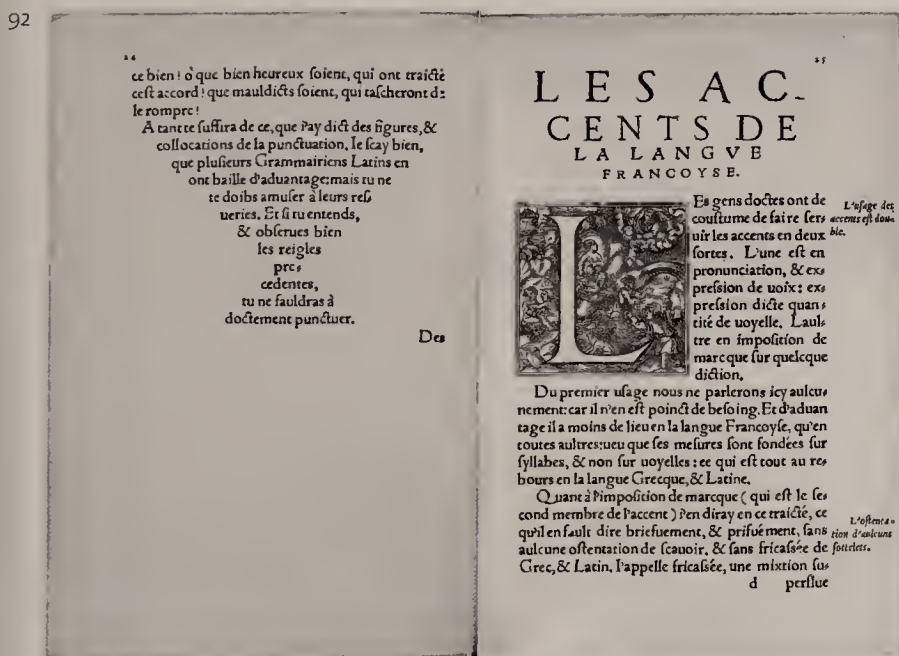 92
24
ce bien! o que bien heureux ſoient, qui ont traicté
ceſt accord! que mauldicts ſoient, qui taſcheront de
le rompre!
A tant te ſuffira de ce, que i'ay dict des figures, &
collocations de la punctuation. Ie ſcay bien,
que pluſieurs Grammairiens Latins en
ont baille d'aduantage: mais tu ne
te doibs amuſer à leurs reſ
ueries. Et ſi tu entends,
& obſerues bien
les reigles
pre-
cedentes,
tu ne fauldras à
doctement punctuer.
Des
25
LES AC-
CENTS DE
LA LANGVE
FRANCOYSE.
LEs gens doctes ont de
couſtume de faire ſer-
uir les accents en deux
ſortes. L'une eſt en
pronunciation, & ex-
preſsion de uoix: ex-
preſsion dicte quan-
tité de uoyelle. Laul-
tre en impoſition de
marcque ſur quelcque
diction.
L'uſage des
accents eſt dou-
ble.
Du premier uſage nous ne parlerons icy aulcu-
nement: car il n'en eſt poinct de beſoing. Et d'aduan
tage il a moins de lieu en la langue Francoyſe, qu'en
toutes aultres: ueu que ſes meſures ſont fondées ſur
ſyllabes, & non ſur uoyelles: ce qui eſt tout au re-
bours en la langue Grecque, & Latine.
Quant à l'impoſition de marcque ( qui eſt le ſe-
cond membre de l'accent ) i'en diray en ce traicté, ce
qu'il en fault dire briefuement, & priſuément, ſans
aulcune oſtentation de ſcauoir, & ſans fricaſsée de
Grec, & Latin. I'appelle fricaſsée, une mixtion ſu-
L'oſtenta-
tion d'aulcuns
ſottelets.
d perflue